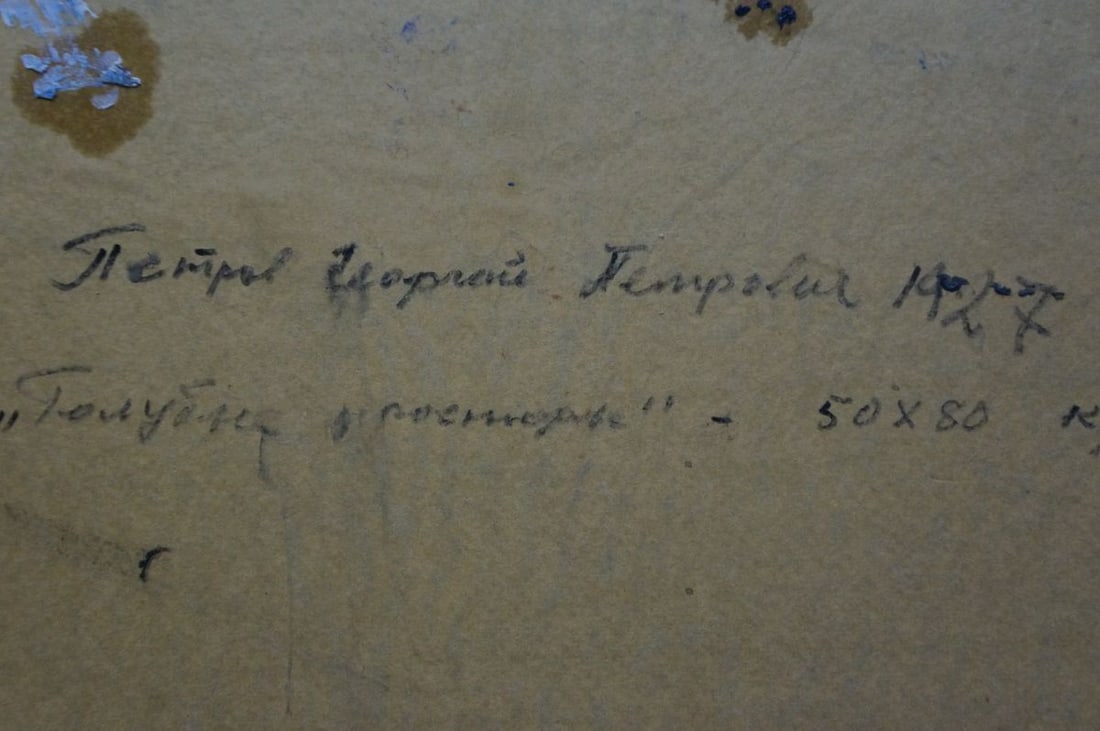 Петров Георгий Петрович
"Голубые просторы" - 50X80 к